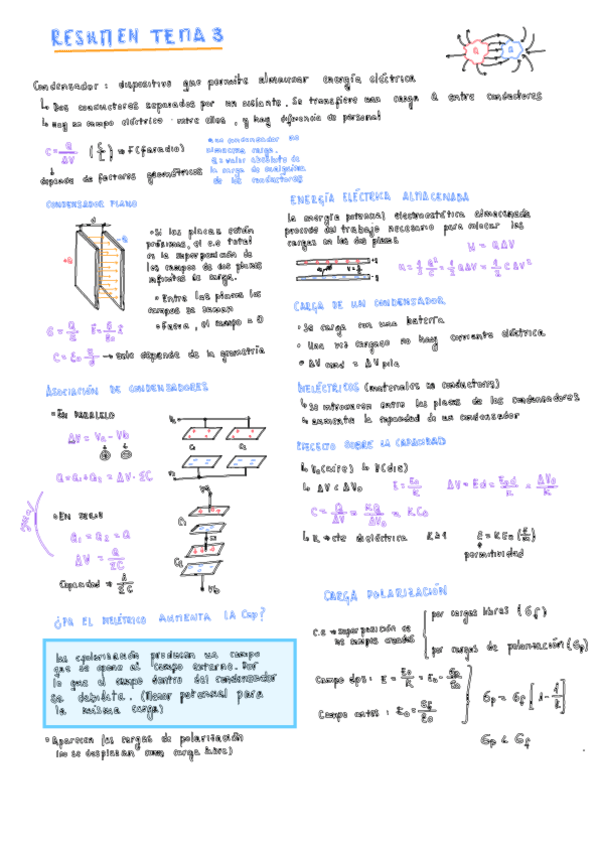 RESUMEN TEMA 3
Condensador : dispositivo que permite almacenar energía eléctrica
↳ Dos conductores separados por un aislante. Se transfiere una carga Q entre conductores
↳ Hay un campo eléctrico entre ellos, y hay diferencia de potencial
C = Q/ΔV → F (faradio)
un condensador no
almacena carga.
Q = valor absoluto de
la carga de cualquiera
de los conductores
depende de factores geométricos
CONDENSADOR PLANO
d
+Q
-Q
• Si las placas están
próximas, el c.e total
es la superposición de
los campos de dos planos
infinitos de carga.
• Entre las placas los
campos se suman
• Fuera, el campo = 0
→ solo depende de la geometría
ENERGÍA ELÉCTRICA ALMACENADA
la energía potencial electrostática almacenada
procede del trabajo necesario para colocar las
cargas en los dos planos
W = QΔV
U = 1/2 Q²/C = 1/2 QΔV = 1/2 C ΔV²
CARGA DE UN CONDENSADOR
• Se carga con una batería
• Una vez cargado no hay corriente eléctrica
• ΔV cond = ΔV pila
ASOCIACIÓN DE CONDENSADORES
• EN PARALELO
ΔV = Va - Vb
Q = Q1 + Q2 = ΔV · ΣC
• EN SERIE
Q1 = Q2 = Q
C1
C2
DIELÉCTRICOS (materiales no conductores)
↳ Se introducen entre las placas de los condensadores
↳ aumenta la capacidad de un condensador
EFECTO SOBRE LA CAPACIDAD
↳ V0 (aire) ↳ V (die)
↳ ΔV < ΔV0
E = E0/K
ΔV = Ed = E0d/K = ΔV0/K
C = Q/ΔV = KQ/ΔV0 = KC0
↳ K → cte dieléctrica K≥1
permitividad
¿PQ EL DIELÉCTRICO AUMENTA LA Cap?
produce un campo
que se opone al campo externo. Por
lo que el campo dentro del condensador
se debilita. (Menor potencial para
la misma carga)
• Aparecen las cargas de polarización
(no se desplazan como carga libre)
CARGA POLARIZACIÓN
C.e → superposición de
los campos creados
por cargas libres (σf)
por cargas de polarización (σp)
Campo dps : E = E0/K = E0 - σp/ε0
Campo antes : E0 = σf/ε0
σp = σf [1 - 1/K]
σp < σf